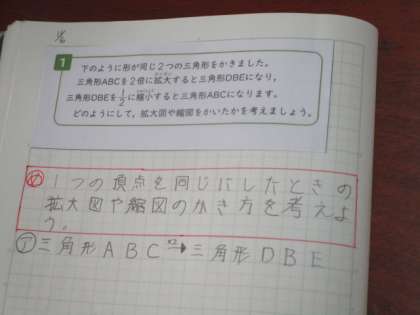 1/6
1
下のように形が同じ2つの三角形をかきました。
三角形ABCを2倍に拡大すると三角形DBEになり,
三角形DBEを1/2に縮小すると三角形ABCになります。
どのようにして,拡大図や縮図をかいたかを考えましょう。
め 1つの頂点を同じにしたときの
拡大図や縮図のかき方を考えよ
う。
① 三角形ABC→三角形DBE